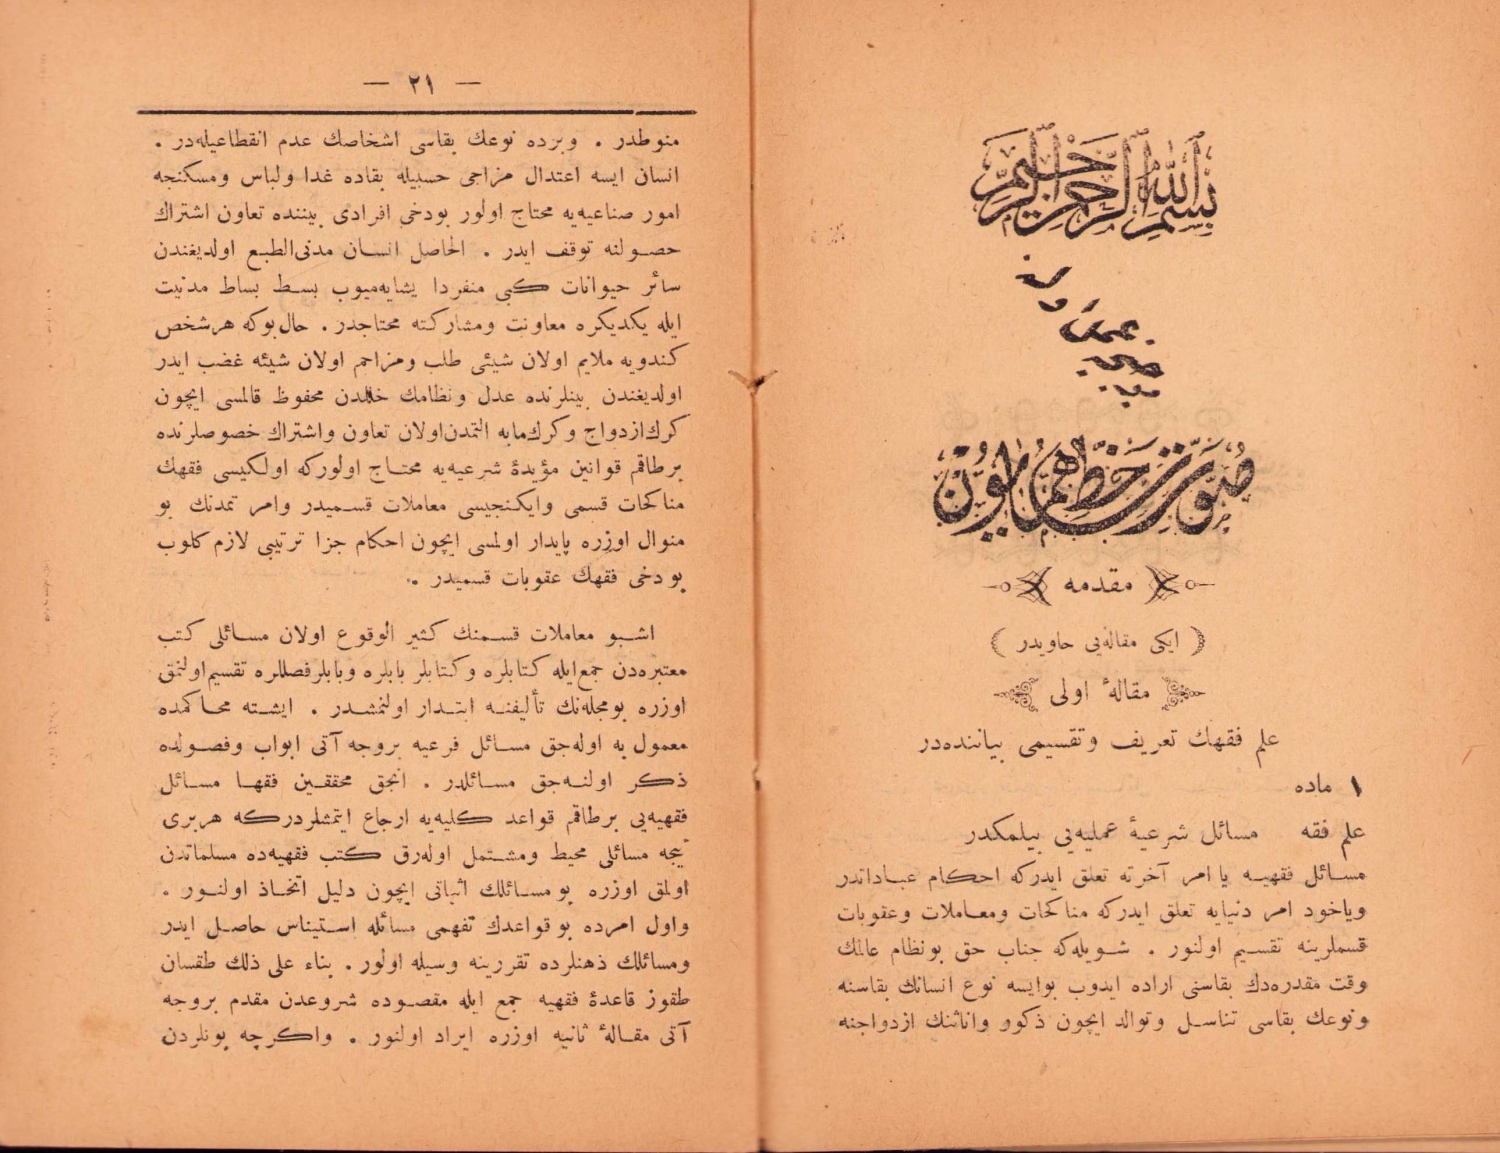 بسم الله الرحمن الرحيم
صورت خط همايون
مقدمه
( ايكى مقاله‌يى حاويدر )
مقالهٔ اولى
علم فقهك تعريف وتقسيمى بياننده‌در
١ ماده
علم فقه مسائل شرعيهٔ عمليه‌يى بيلمكدر
مسائل فقهيه يا امر آخرته تعلق ايدركه احكام عباداتدر
وياخود امر دنيايه تعلق ايدركه مناكحات ومعاملات وعقوبات
قسملرينه تقسيم اولنور . شويله‌كه جناب حق بونظام عالمك
وقت مقدره‌دك بقاسنى اراده ايدوب بوايسه نوع انسانك بقاسنه
ونوعك بقاسى تناسل وتوالد ايچون ذكور واناثنك ازدواجنه
— ٢١ —
منوطدر . وبرده نوعك بقاسى اشخاصك عدم انقطاعيله‌در .
انسان ايسه اعتدال مزاجى حسبيله بقاده غدا ولباس ومسكنجه
امور صناعيه‌يه محتاج اولور بودخى افرادى بيننده تعاون اشتراك
حصولنه توقف ايدر . الحاصل انسان مدنى‌الطبع اولديغندن
سائر حيوانات كبى منفردا يشايه‌ميوب بسط بساط مدنيت
ايله يكديكره معاونت ومشاركته محتاجدر . حال‌بوكه هرشخص
كندويه ملايم اولان شيئى طلب ومزاحم اولان شيئه غضب ايدر
اولديغندن بينلرنده عدل ونظامك خللدن محفوظ قالمسى ايچون
كرك‌ازدواج وكرك‌مابه التمدن‌اولان تعاون واشتراك خصوصلرنده
برطاقم قوانين مؤيدهٔ شرعيه‌يه محتاج اولوركه اولكيسى فقهك
مناكحات قسمى وايكنجيسى معاملات قسميدر وامر تمدنك بو
منوال اوزره پايدار اولمسى ايچون احكام جزا ترتيبى لازم كلوب
بودخى فقهك عقوبات قسميدر .
اشبو معاملات قسمنك كثير الوقوع اولان مسائلى كتب
معتبره‌دن جمع‌ايله كتابلره وكتابلر بابلره وبابلرفصللره تقسيم‌اولنمق
اوزره بومجله‌نك تأليفنه ابتدار اولنمشدر . ايشته محاكمده
معمول به اوله‌جق مسائل فرعيه بروجه آتى ابواب وفصولده
ذكر اولنه‌جق مسائلدر . انجق محققين فقها مسائل
فقهيه‌يى برطاقم قواعد كليه‌يه ارجاع ايتمشلردركه هربرى
نيجه مسائلى محيط ومشتمل اوله‌رق كتب فقهيه‌ده مسلماتدن
اولمق اوزره بومسائلك اثباتى ايچون دليل اتخاذ اولنور .
واول امرده بوقواعدك تفهمى مسائله استيناس حاصل ايدر
ومسائلك ذهنلرده تقررينه وسيله اولور . بناء على ذلك طقسان
طقوز قاعدهٔ فقهيه جمع ايله مقصوده شروعدن مقدم بروجه
آتى مقالهٔ ثانيه اوزره ايراد اولنور . واكرچه بونلردن